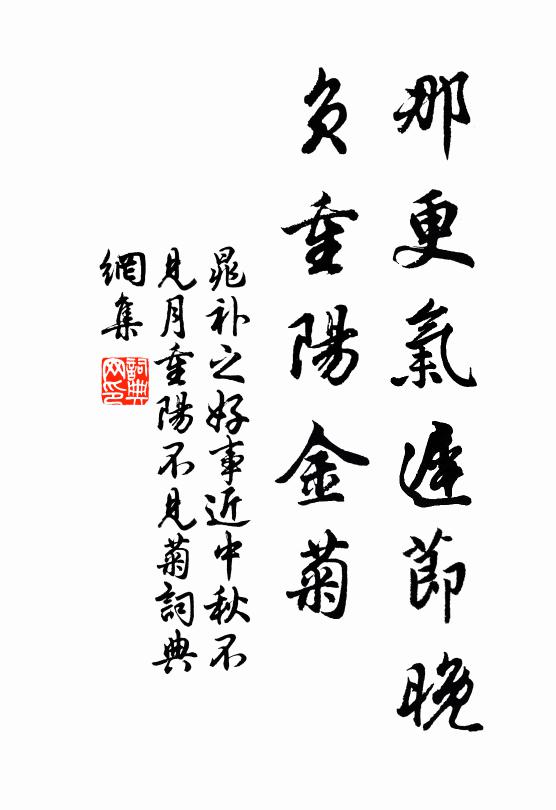 那更氣遲節晚
負重陽金菊
晁补之好事近中秋不
見月重陽不見菊詞典
網集
詞典
网印